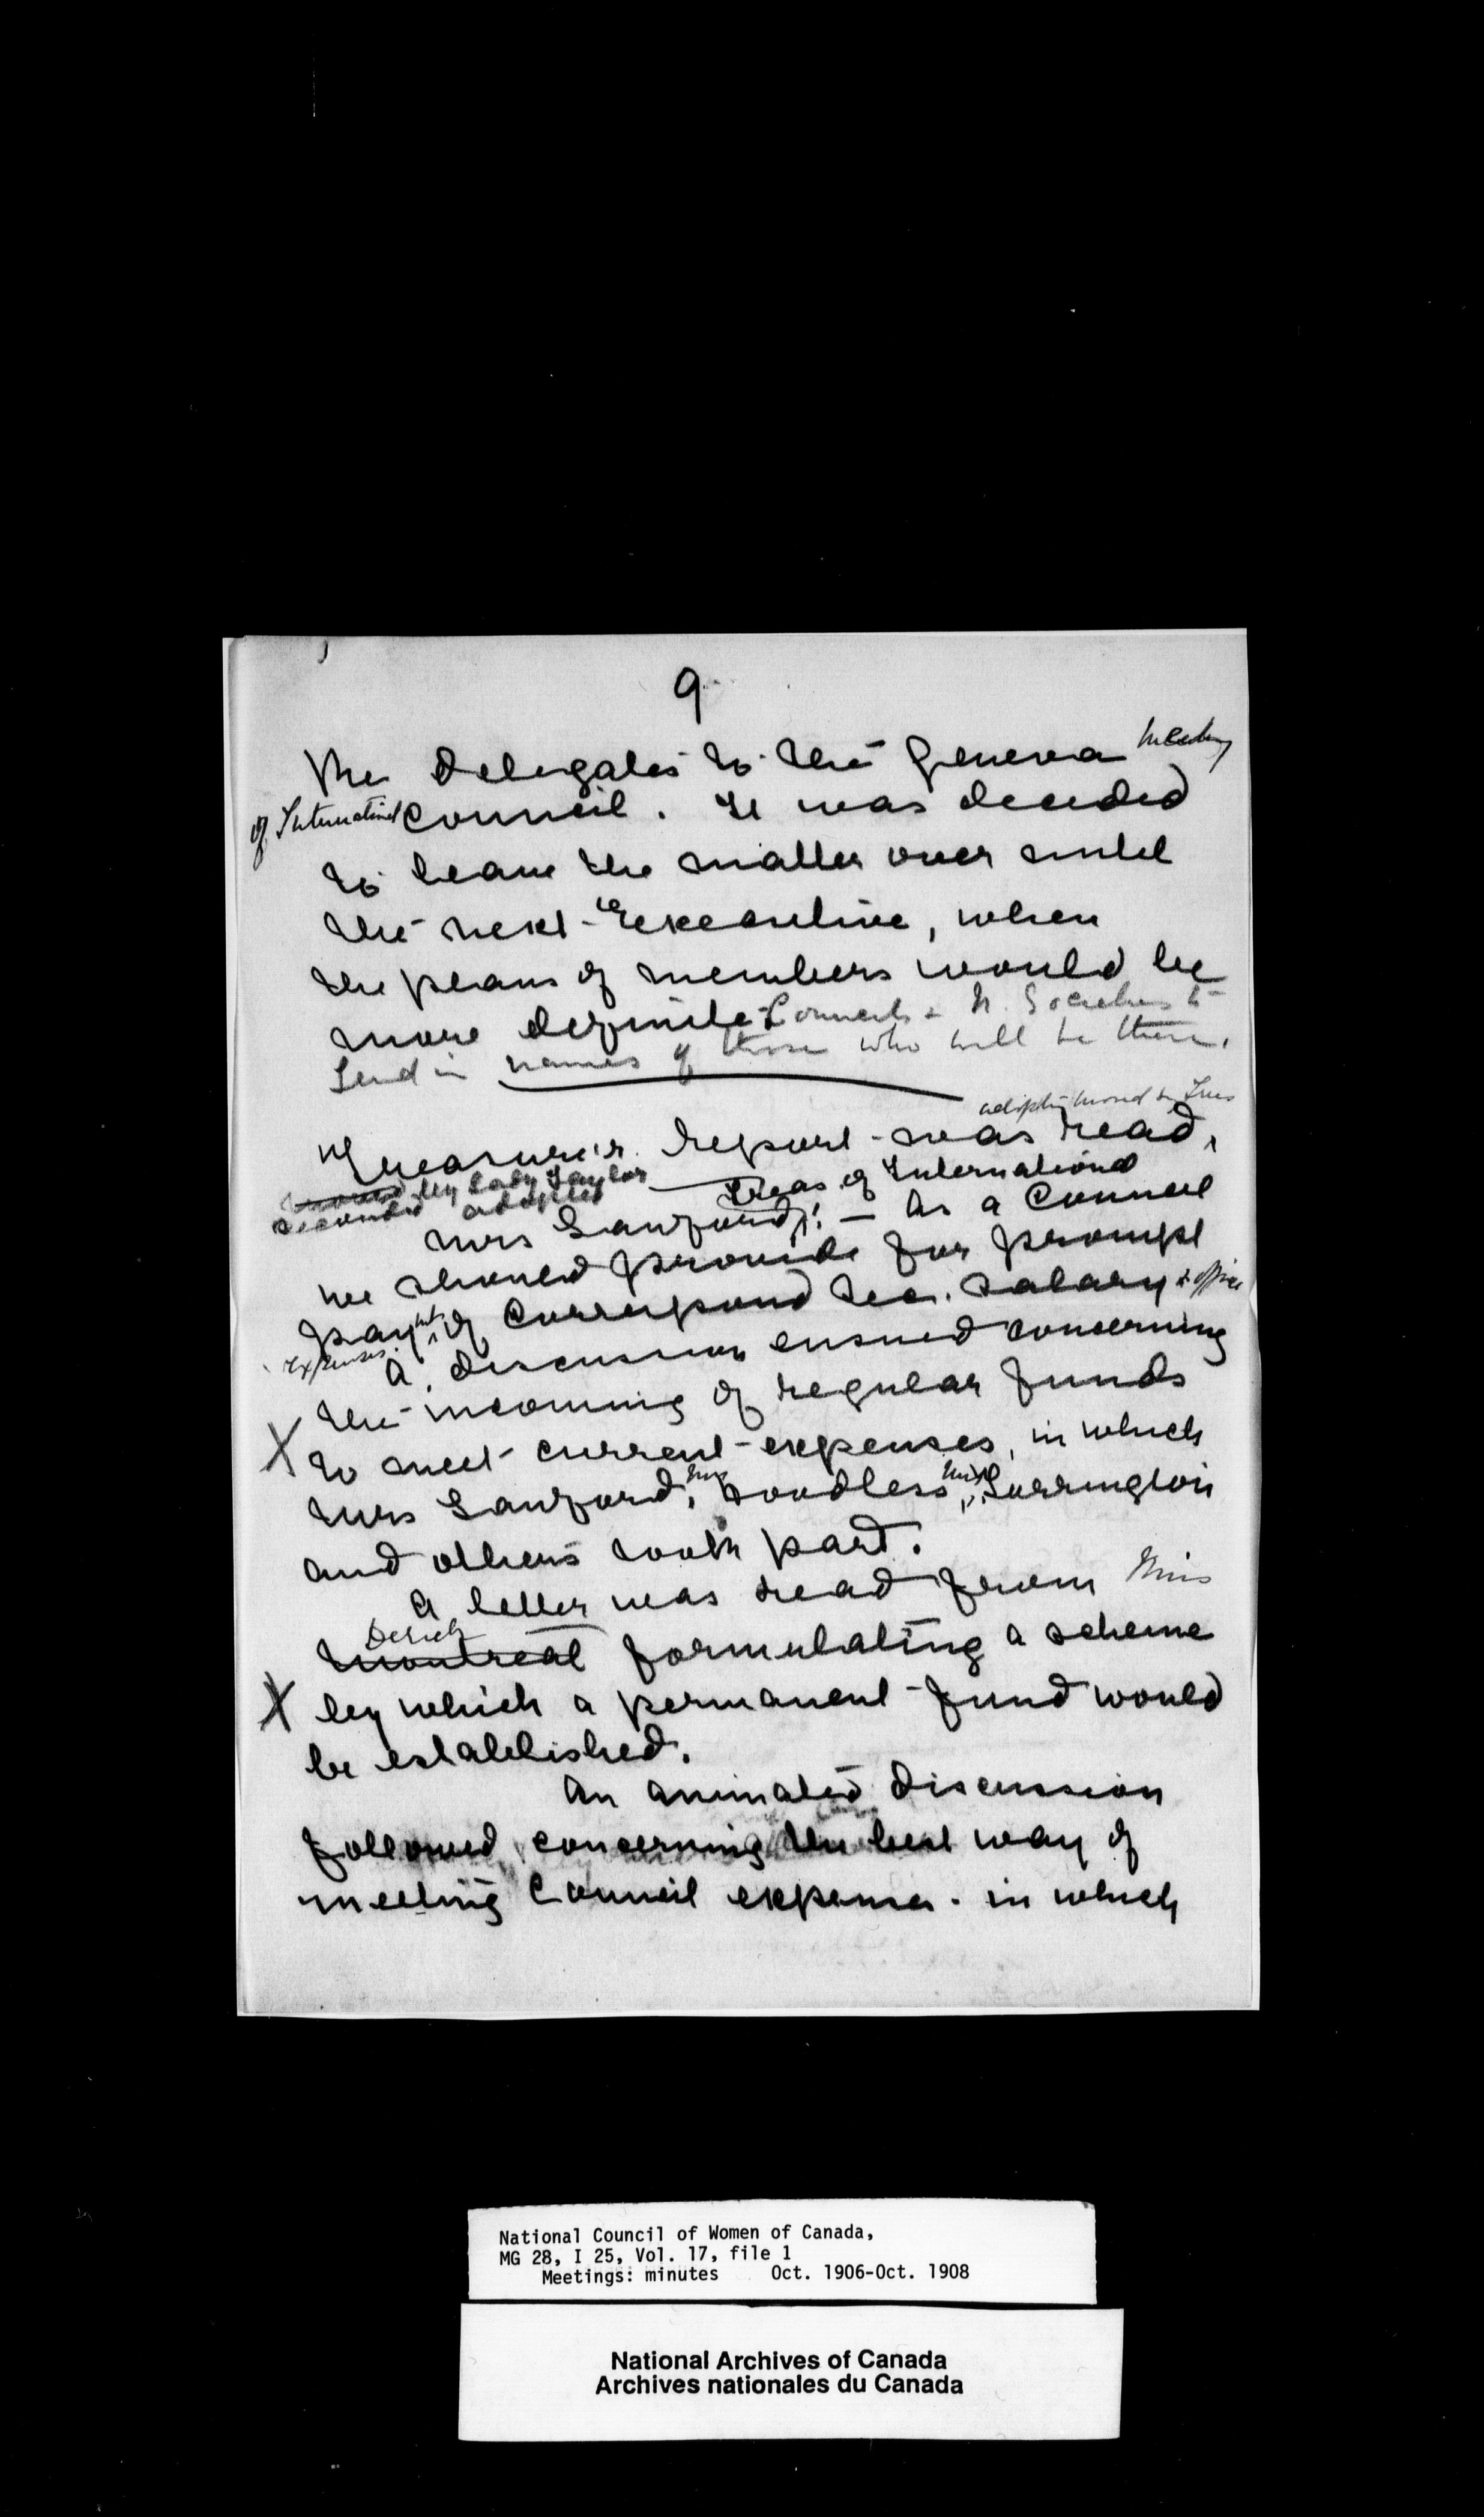 9
The Delegates to the Geneva Meeting
of International Council. It was decided
to leave the matter over until
the next Executive, when
the plans of members would be
more definite - Councils & N. Societies to
send in names of those who will be there.
adoption moved by Treas
Treasurer's Report was read,
moved by Lady Taylor
seconded adopted
Treas. of International
Mrs Sanford: — As a Council
we should provide for prompt
paymt of Correspond Sec. Salary & office
expenses.
A discussion ensued concerning
the incoming of regular funds
X to meet current expenses, in which
Mrs Sanford, Mrs Hoodless, Mrs Torrington
and others took part.
A letter was read from Miss
Derick
Montreal formulating a scheme
X by which a permanent fund would
be established.
An animated Discussion
followed, concerning the best way of
meeting Council expenses. in which
National Council of Women of Canada,
MG 28, I 25, Vol. 17, file 1
Meetings: minutes Oct. 1906-Oct. 1908
National Archives of Canada
Archives nationales du Canada